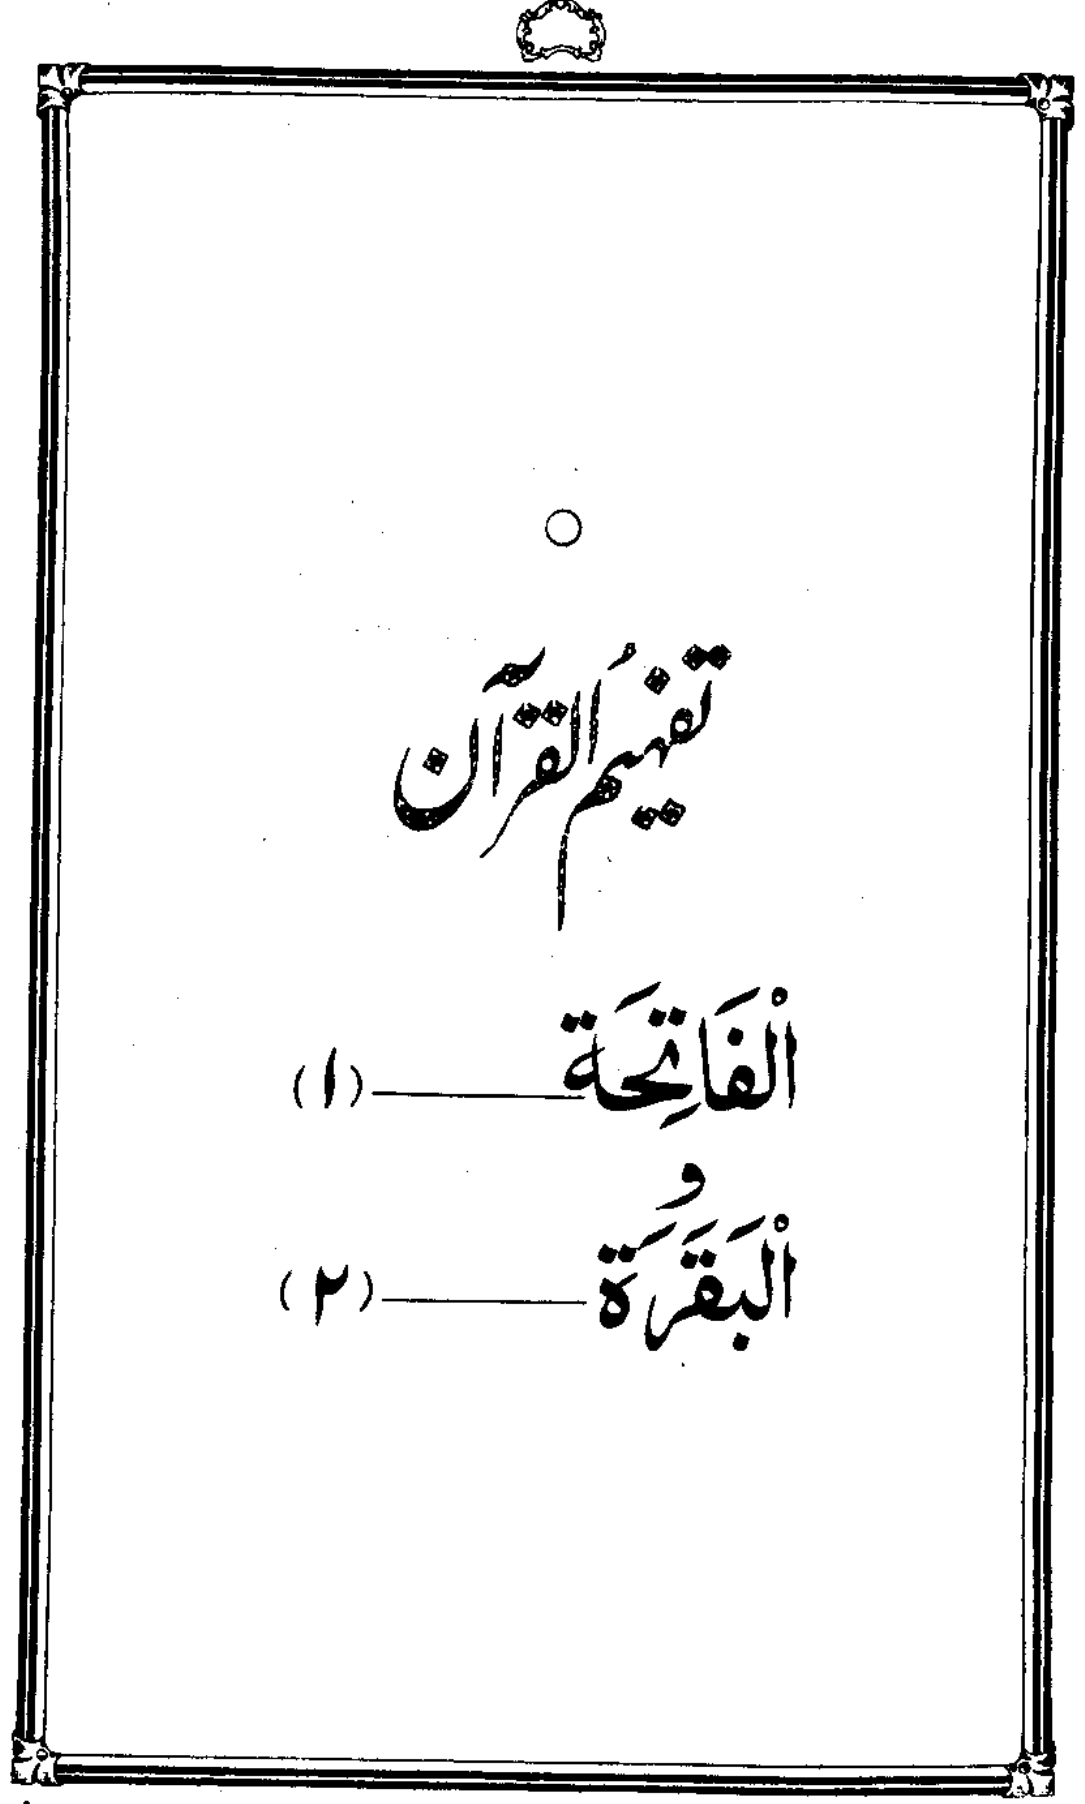 تفہیمُ القرآن
اَلْفَاتِحَة ــــــــــ (۱)
و
اَلْبَقَرَة ــــــــــ (۲)